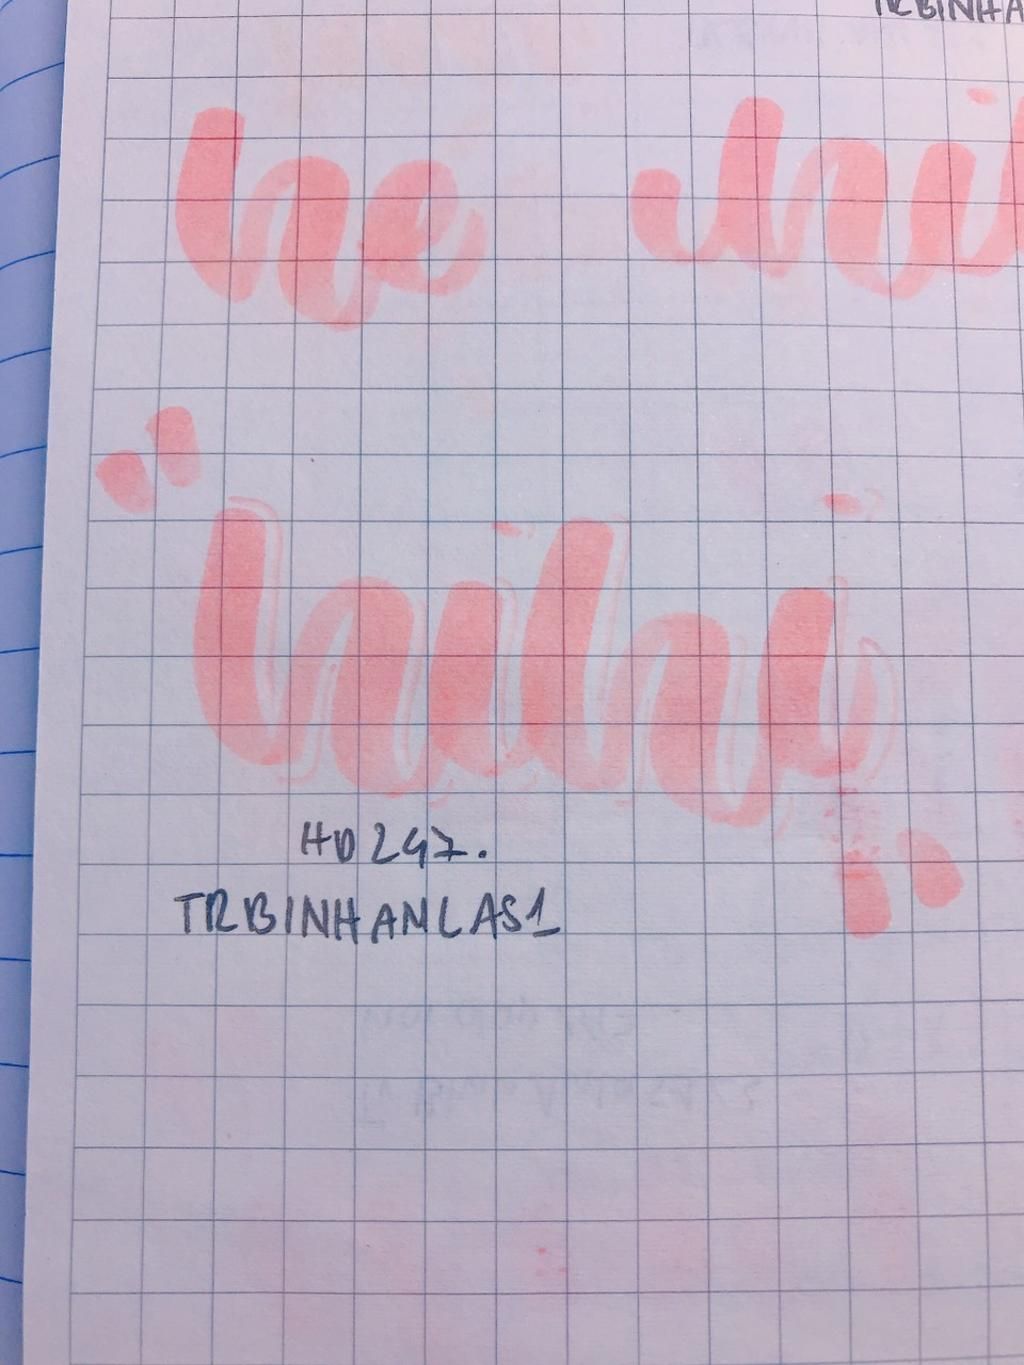 TRBINHA
he hi
"hihi"
HD247.
TRBINHANLAS1